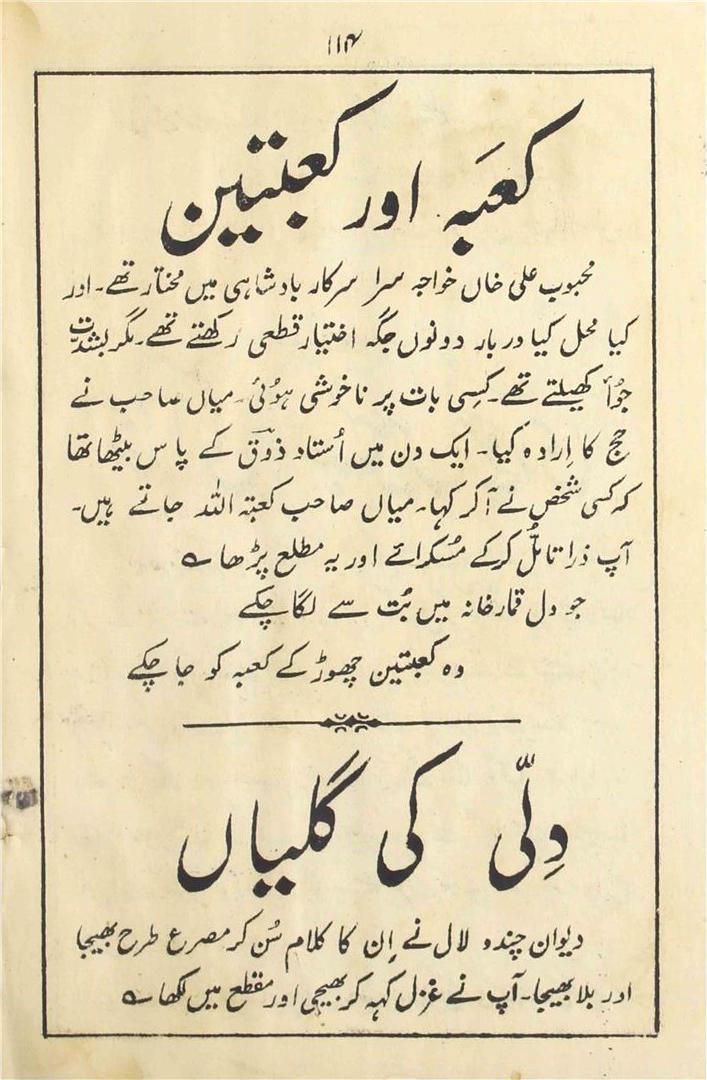 ۱۱۴
کعبہ اور کعبتین
محبوب علی خاں خواجہ سرا سرکار بادشاہی میں مختار تھے۔ اور
کیا محل کیا دربار دونوں جگہ اختیار قطعی رکھتے تھے۔ مگر بشدت
جُوأ کھیلتے تھے۔ کِسی بات پر ناخوشی ہوئی۔ میاں صاحب نے
حج کا اِرادہ کیا۔ ایک دن میں اُستاد ذوقؔ کے پاس بیٹھا تھا
کہ کسی شخص نے آ کر کہا۔ میاں صاحب کعبتہ اللہ جاتے ہیں۔
آپ ذرا تامّل کرکے مُسکرائے اور یہ مطلع پڑھا ؎
جو دل قمار خانہ میں بُت سے لگا چکے
وہ کعبتین چھوڑ کے کعبہ کو جا چکے
دِلّی کی گلیاں
دیوان چندو لال نے اِن کا کلام سُن کر مصرع طرح بھیجا
اور بلا بھیجا۔ آپ نے غزل کہہ کر بھیجی اور مقطع میں لکھا ؎